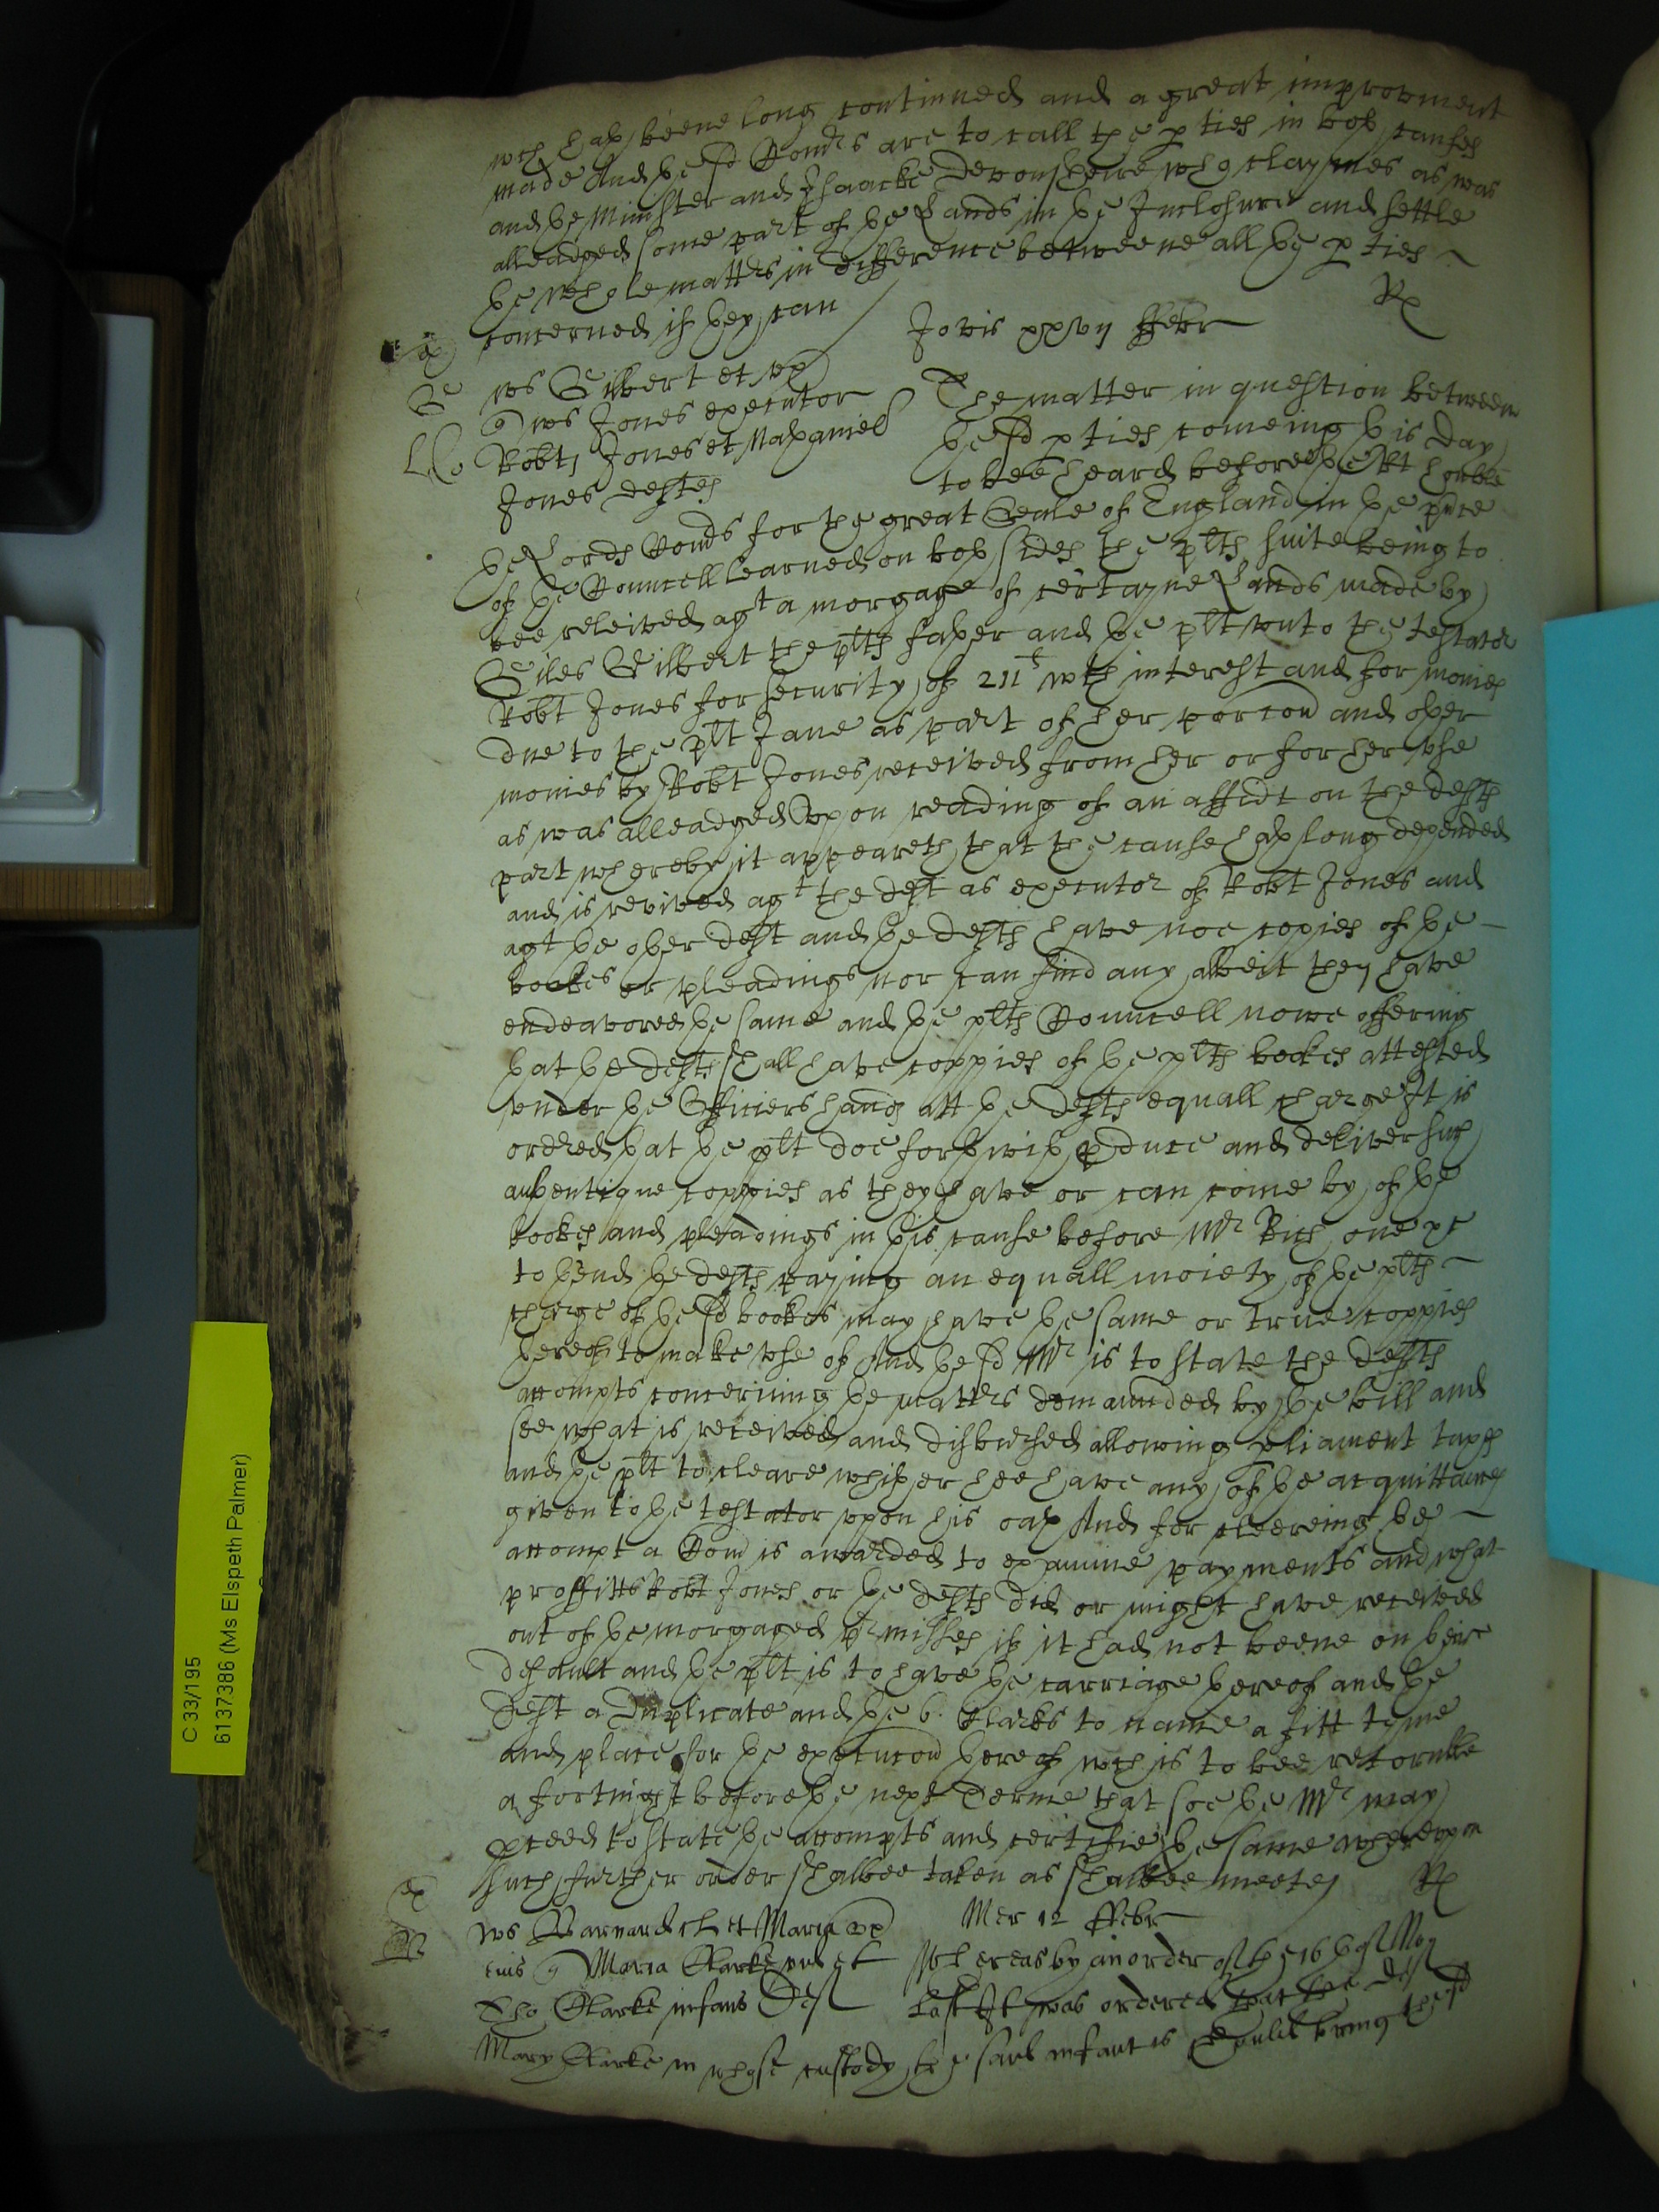 wch hath beene long continued and a great improvment
made And the sd Comrs are to call the pties in both causes
and the Minister and Isaacke Devonsheire who claymes as was
alleadged some part of the Lands in the Inclosure and settle
the whole matters in difference betweene all the pties
concerned if they can
Rx
Jovis xxvij ffebr
ws Gilbert et ux
ws Jones executor
Robti Jones et Nathaniel
Jones deftes
The matter in question betweene
the sd pties comeing this day
to bee heard before the Rt honble
the Lords Comrs for the great Seale of England in the pnce
of the Councell learned on both sides the plts suite being to
bee releived agt a morgage of certayne Lands made by
Giles Gilbert the plts father and the plt unto the testator
Robt Jones for security of 211l wth interest and for monies
due to the plt Jane as part of her porcon and other
monies by Robt Jones received from her or for her use
as was alleadged Upon reading of an affidt on the defts
part whereby it appeareth that the cause hath long depended
and is revived agt the deft as executor of Robt Jones and
agt the other deft and the defts have noe copies of the
bookes or pleadings nor can find any albeit they have
endeavored the same and the plts Councell nowe offering
that the defts shall have coppies of the plts bookes attested
under the Officers hand att the defts equall charge It is
ordred that the plt doe forthwith pduce and deliver such
authentique coppies as they have or can come by of the
bookes and pleadings in this cause before Mr Rich one &c
to thend the defts paying an equall moiety of the plts
charge of the sd bookes may have the same or true coppies
thereof to make use of And the sd Mr is to state the defts
accompts concerning the matters demaunded by the bill and
see what is received and disbursed allowing pliament taxes
and the plt to cleare whither hee have any of the acquittances
given to the testator upon his oath And for cleereing the
accompt a Comn is awarded to examine payments and what
proffitts Robt Jones or the defts did or might have received
out of the morgaged premisses if it had not beene on their
default and the plt is to have the carriage thereof and the
Deft a Duplicate and the 6. Clarks to name a fitt tyme
and place for the execucon thereof wch is to bee retornble
a fortnight before the next Terme that soe the Mr may
pceed to state the accompts and certifie the same whereupon
such further order shalbee taken as shalbee meete
Rx
Mer 12 ffebr
ws Barnard et Maria ux
eius Maria Clarke vid et
Tho Clarke infans Def
Whereas by an order of the 16th of May
last It was ordered that the Deft
Mary Clarke in whose custody the said infant is should bring the sd
C 33/195
6137386 (Ms Elspeth Palmer)